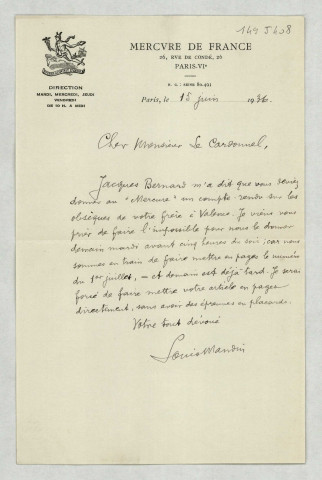 149 5608
MERCVRE DE FRANCE
26, RVE DE CONDÉ, 26
PARIS-VIe
R. C. : SEINE 80.493
DIRECTION
MARDI, MERCREDI, JEUDI
VENDREDI
DE 10 H. A MIDI
Paris, le 15 juin 1936
Cher Monsieur Le Cardonnel,
Jacques Bernard m'a dit que vous vouliez
donner au "Mercure" un compte-rendu sur les
obsèques de votre frère à Valence. Je viens vous
prier de faire l'impossible pour nous le donner
demain mardi avant cinq heures du soir; car nous
sommes en train de faire mettre en pages le numéro
du 1er juillet, — et demain est déjà tard. Je serai
forcé de faire mettre votre article en pages
directement, sans avoir des épreuves en placards.
Votre tout dévoué
Louis Mandin